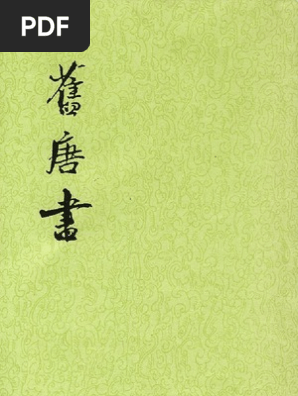 PDF
舊唐書